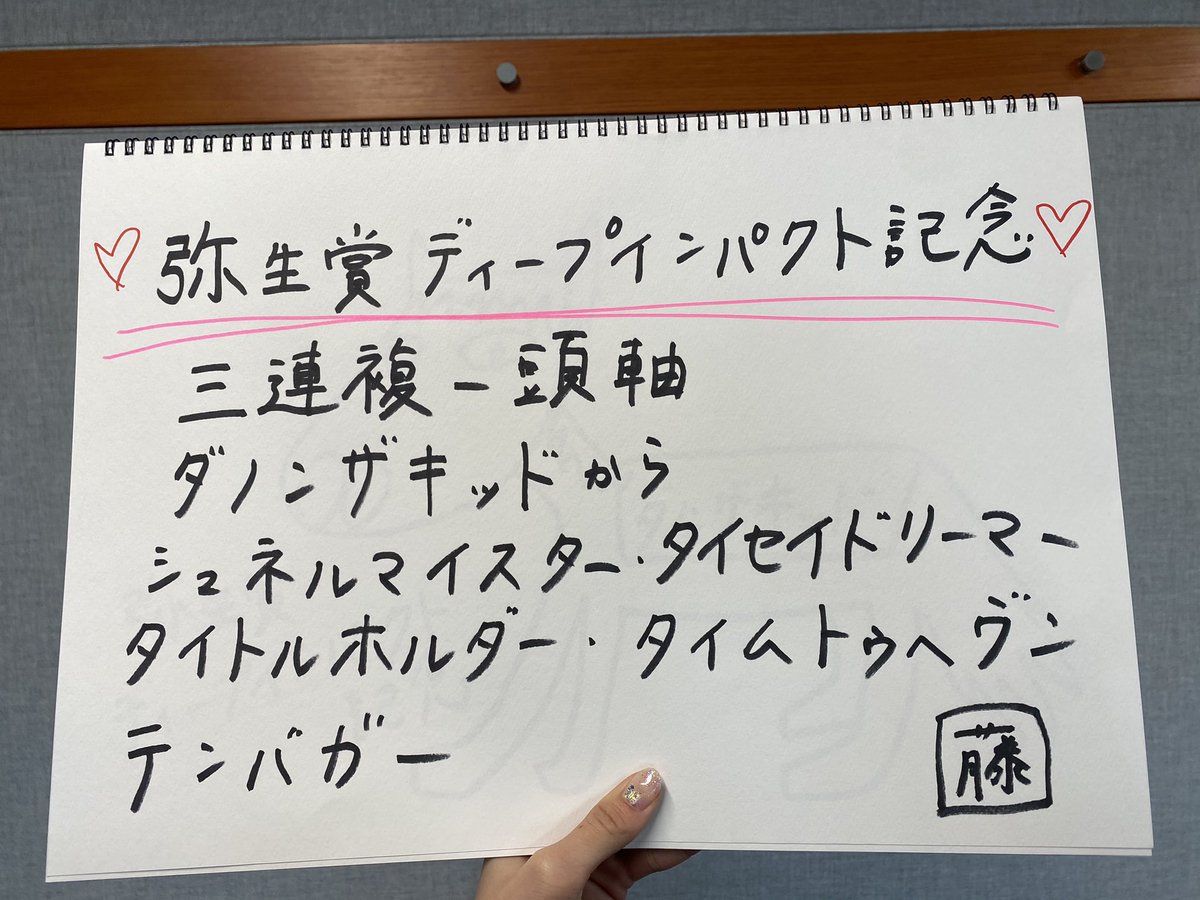 弥生賞ディープインパクト記念
三連複一頭軸
ダノンザキッドから
シュネルマイスター・タイセイドリーマー
タイトルホルダー・タイムトゥヘヴン
テンバガー
藤